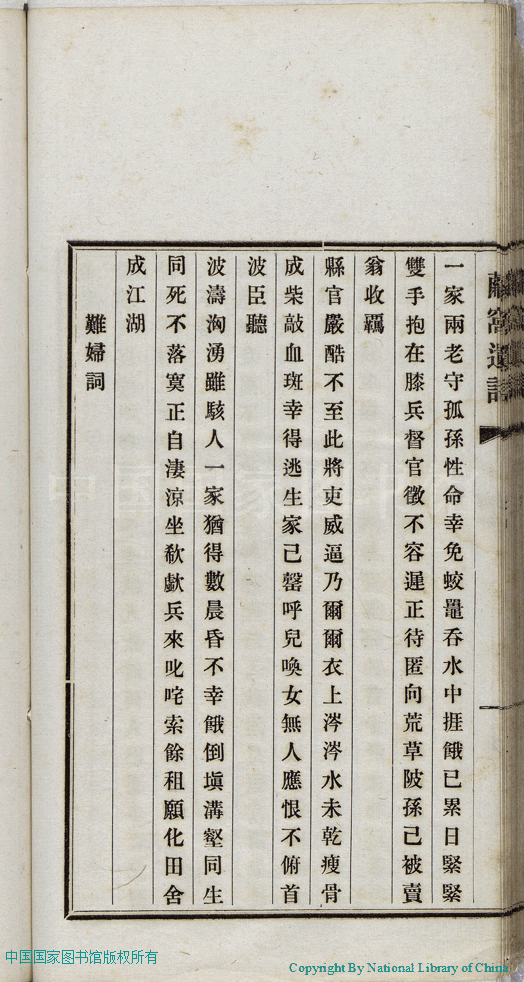 一家兩老守孤孫性命幸免蛟鼉吞水中捱餓已累日緊緊
雙手抱在膝兵督官徵不容遲正待匿向荒草陂孫已被賣
翁收羈
縣官嚴酷不至此將吏威逼乃爾爾衣上涔涔水未乾瘦骨
成柴敲血斑幸得逃生家已罄呼兒喚女無人應恨不俯首
波臣聽
波濤洶湧雖駭人一家猶得數晨昏不幸餓倒塡溝壑同生
同死不落寞正自淒涼坐欷歔兵來叱咤索餘租願化田舍
成江湖
難婦詞
中国国家图书馆版权所有
Copyright By National Library of China